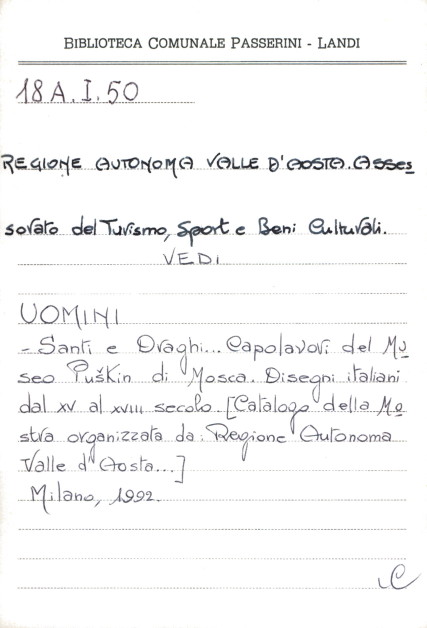 BIBLIOTECA COMUNALE PASSERINI - LANDI
18A.I.50
REGIONE AUTONOMA VALLE D'AOSTA. Asses
sorato del Turismo, Sport e Beni Culturali.
VEDI
UOMINI
- Santi e Draghi... Capolavori del Mu
seo Puškin di Mosca. Disegni italiani
dal XV al XVIII secolo. [Catalogo della Mo
stra organizzata da: Regione Autonoma
Valle d'Aosta...]
Milano, 1992.